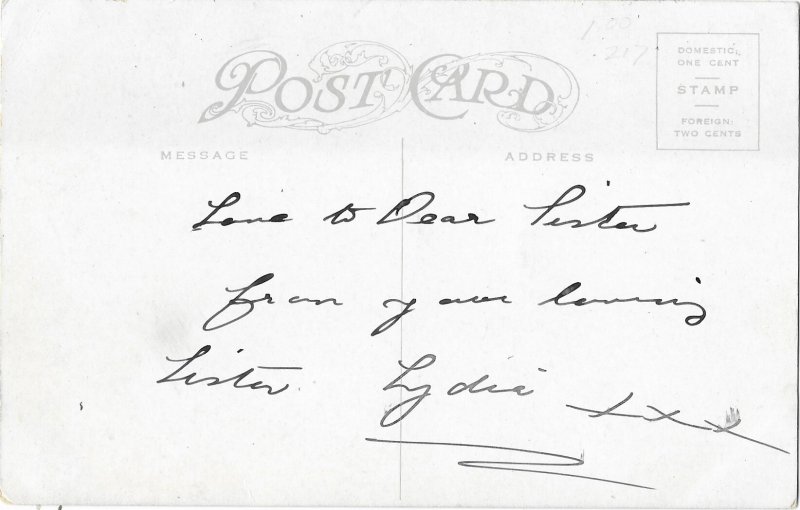 1.00
217
POST CARD
DOMESTIC,
ONE CENT
STAMP
FOREIGN:
TWO CENTS
MESSAGE
ADDRESS
Love to Dear Sister
from your loving
Sister Lydia xxx